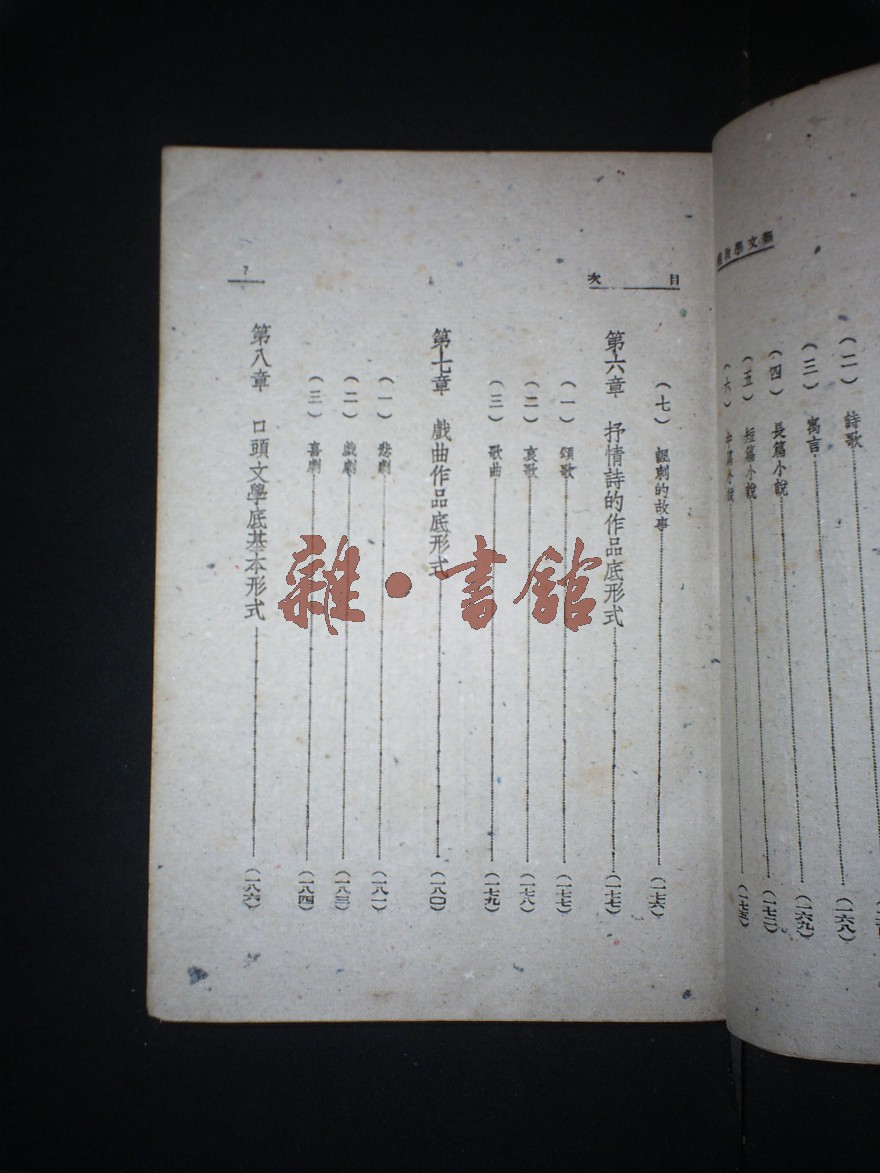 文學
(二) 詩歌 (一六八)
(三) 寓言 (一六九)
(四) 長篇小說 (一七二)
(五) 短篇小說 (一七五)
(六) 中篇小說
目次
(七) 諷刺的故事 (一七六)
第六章 抒情詩的作品底形式 (一七七)
(一) 頌歌 (一七七)
(二) 哀歌 (一七八)
(三) 歌曲 (一七九)
第七章 戲曲作品底形式 (一八〇)
(一) 悲劇 (一八一)
(二) 戲劇 (一八三)
(三) 喜劇 (一八四)
第八章 口頭文學底基本形式 (一八六)
7
雜·書館